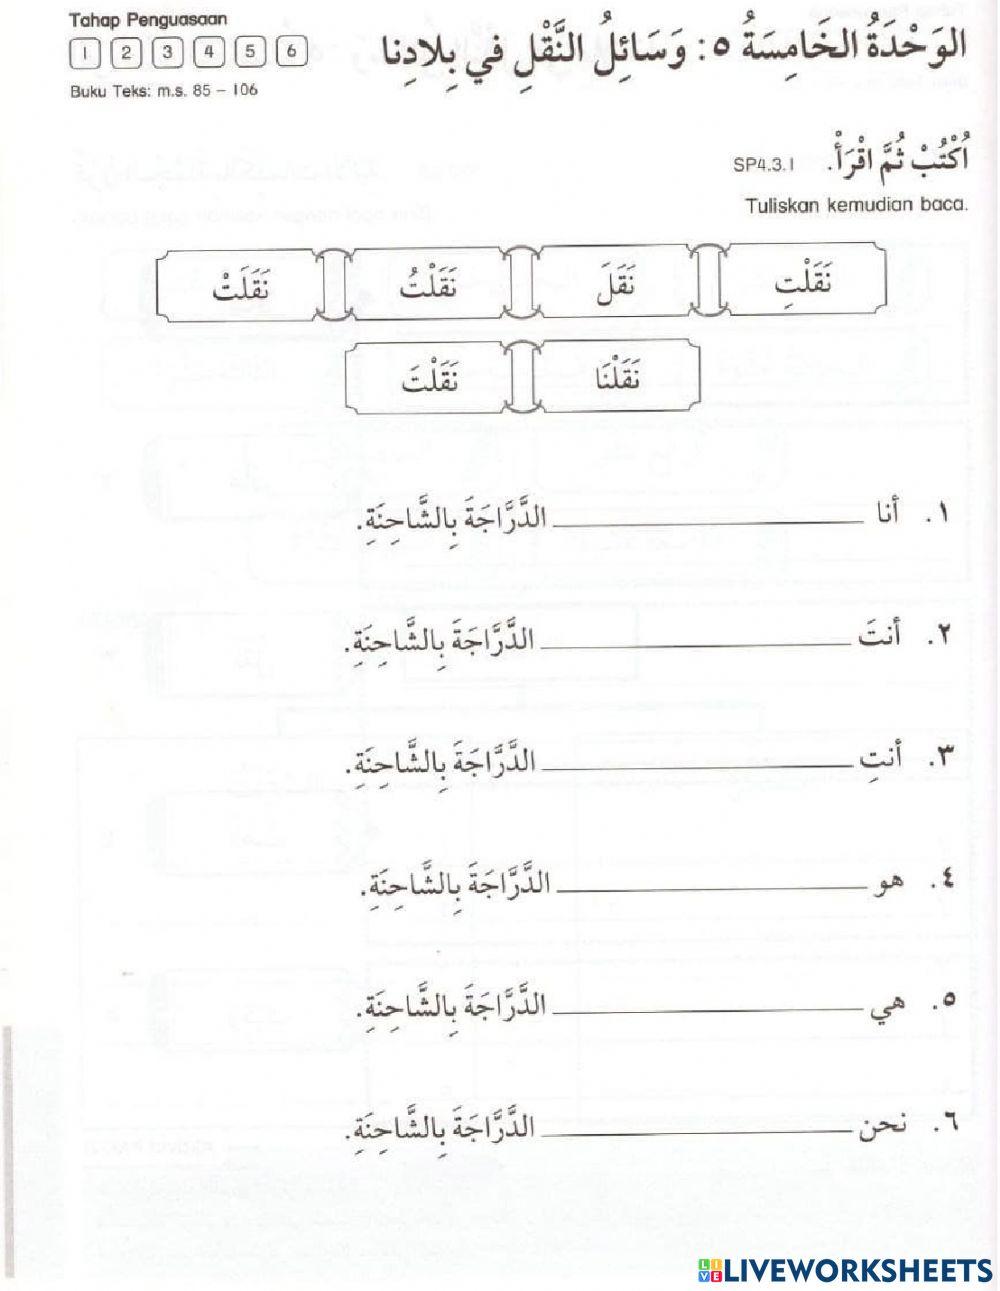 Tahap Penguasaan
1 2 3 4 5 6
Buku Teks: m.s. 85 – 106
الوَحْدَةُ الخَامِسَةُ ٥: وَسَائِلُ النَّقْلِ في بِلادِنا
اُكْتُبْ ثُمَّ اقْرَأْ. SP4.3.1
Tuliskan kemudian baca.
نَقَلْتِ نَقَلَ نَقَلْتُ نَقَلَتْ
نَقَلْنَا نَقَلْتَ
١. أنا ____________ الدَّرَّاجَةَ بِالشَّاحِنَةِ.
٢. أنتَ ____________ الدَّرَّاجَةَ بِالشَّاحِنَةِ.
٣. أنتِ ____________ الدَّرَّاجَةَ بِالشَّاحِنَةِ.
٤. هو ____________ الدَّرَّاجَةَ بِالشَّاحِنَةِ.
٥. هي ____________ الدَّرَّاجَةَ بِالشَّاحِنَةِ.
٦. نحن ____________ الدَّرَّاجَةَ بِالشَّاحِنَةِ.
LIVE LIVEWORKSHEETS